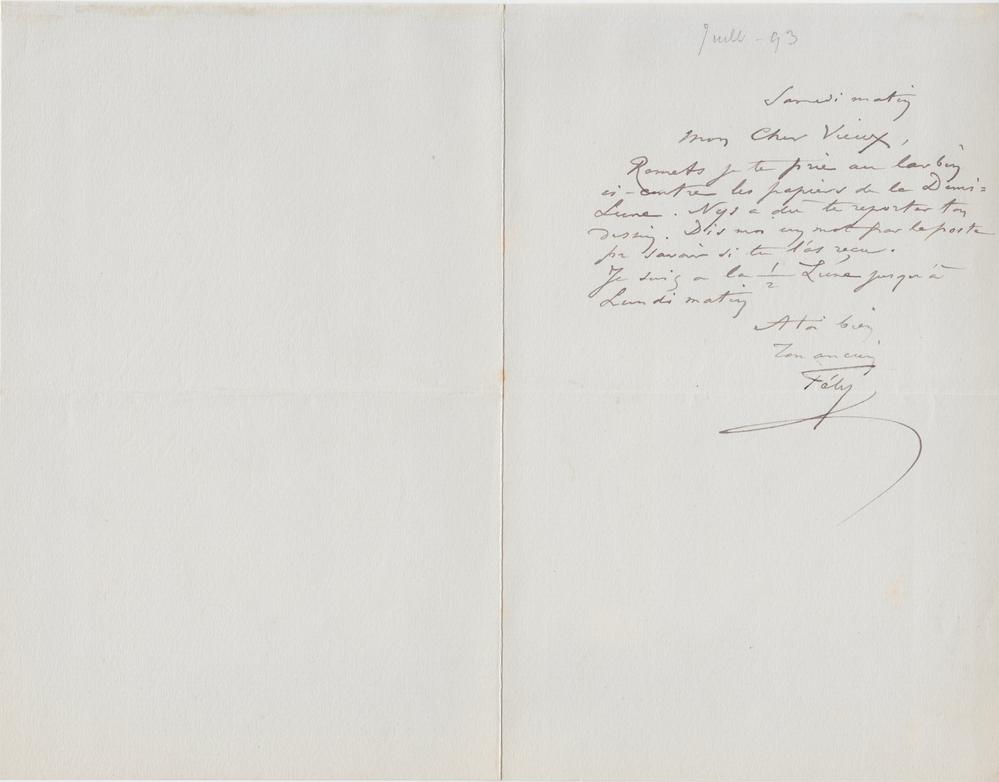 Juill - 93
Samedi matin
Mon Cher Vieux,
Remets je te prie au larbin
ci-contre les papiers de la Demi-
Lune. Nys a dû te reporter ton
dessin. Dis moi un mot par la poste
pr savoir si tu l'as reçu.
Je suis a la 1/2 Lune jusqu'à
Lundi matin
A toi bien
Ton ancien
Fély